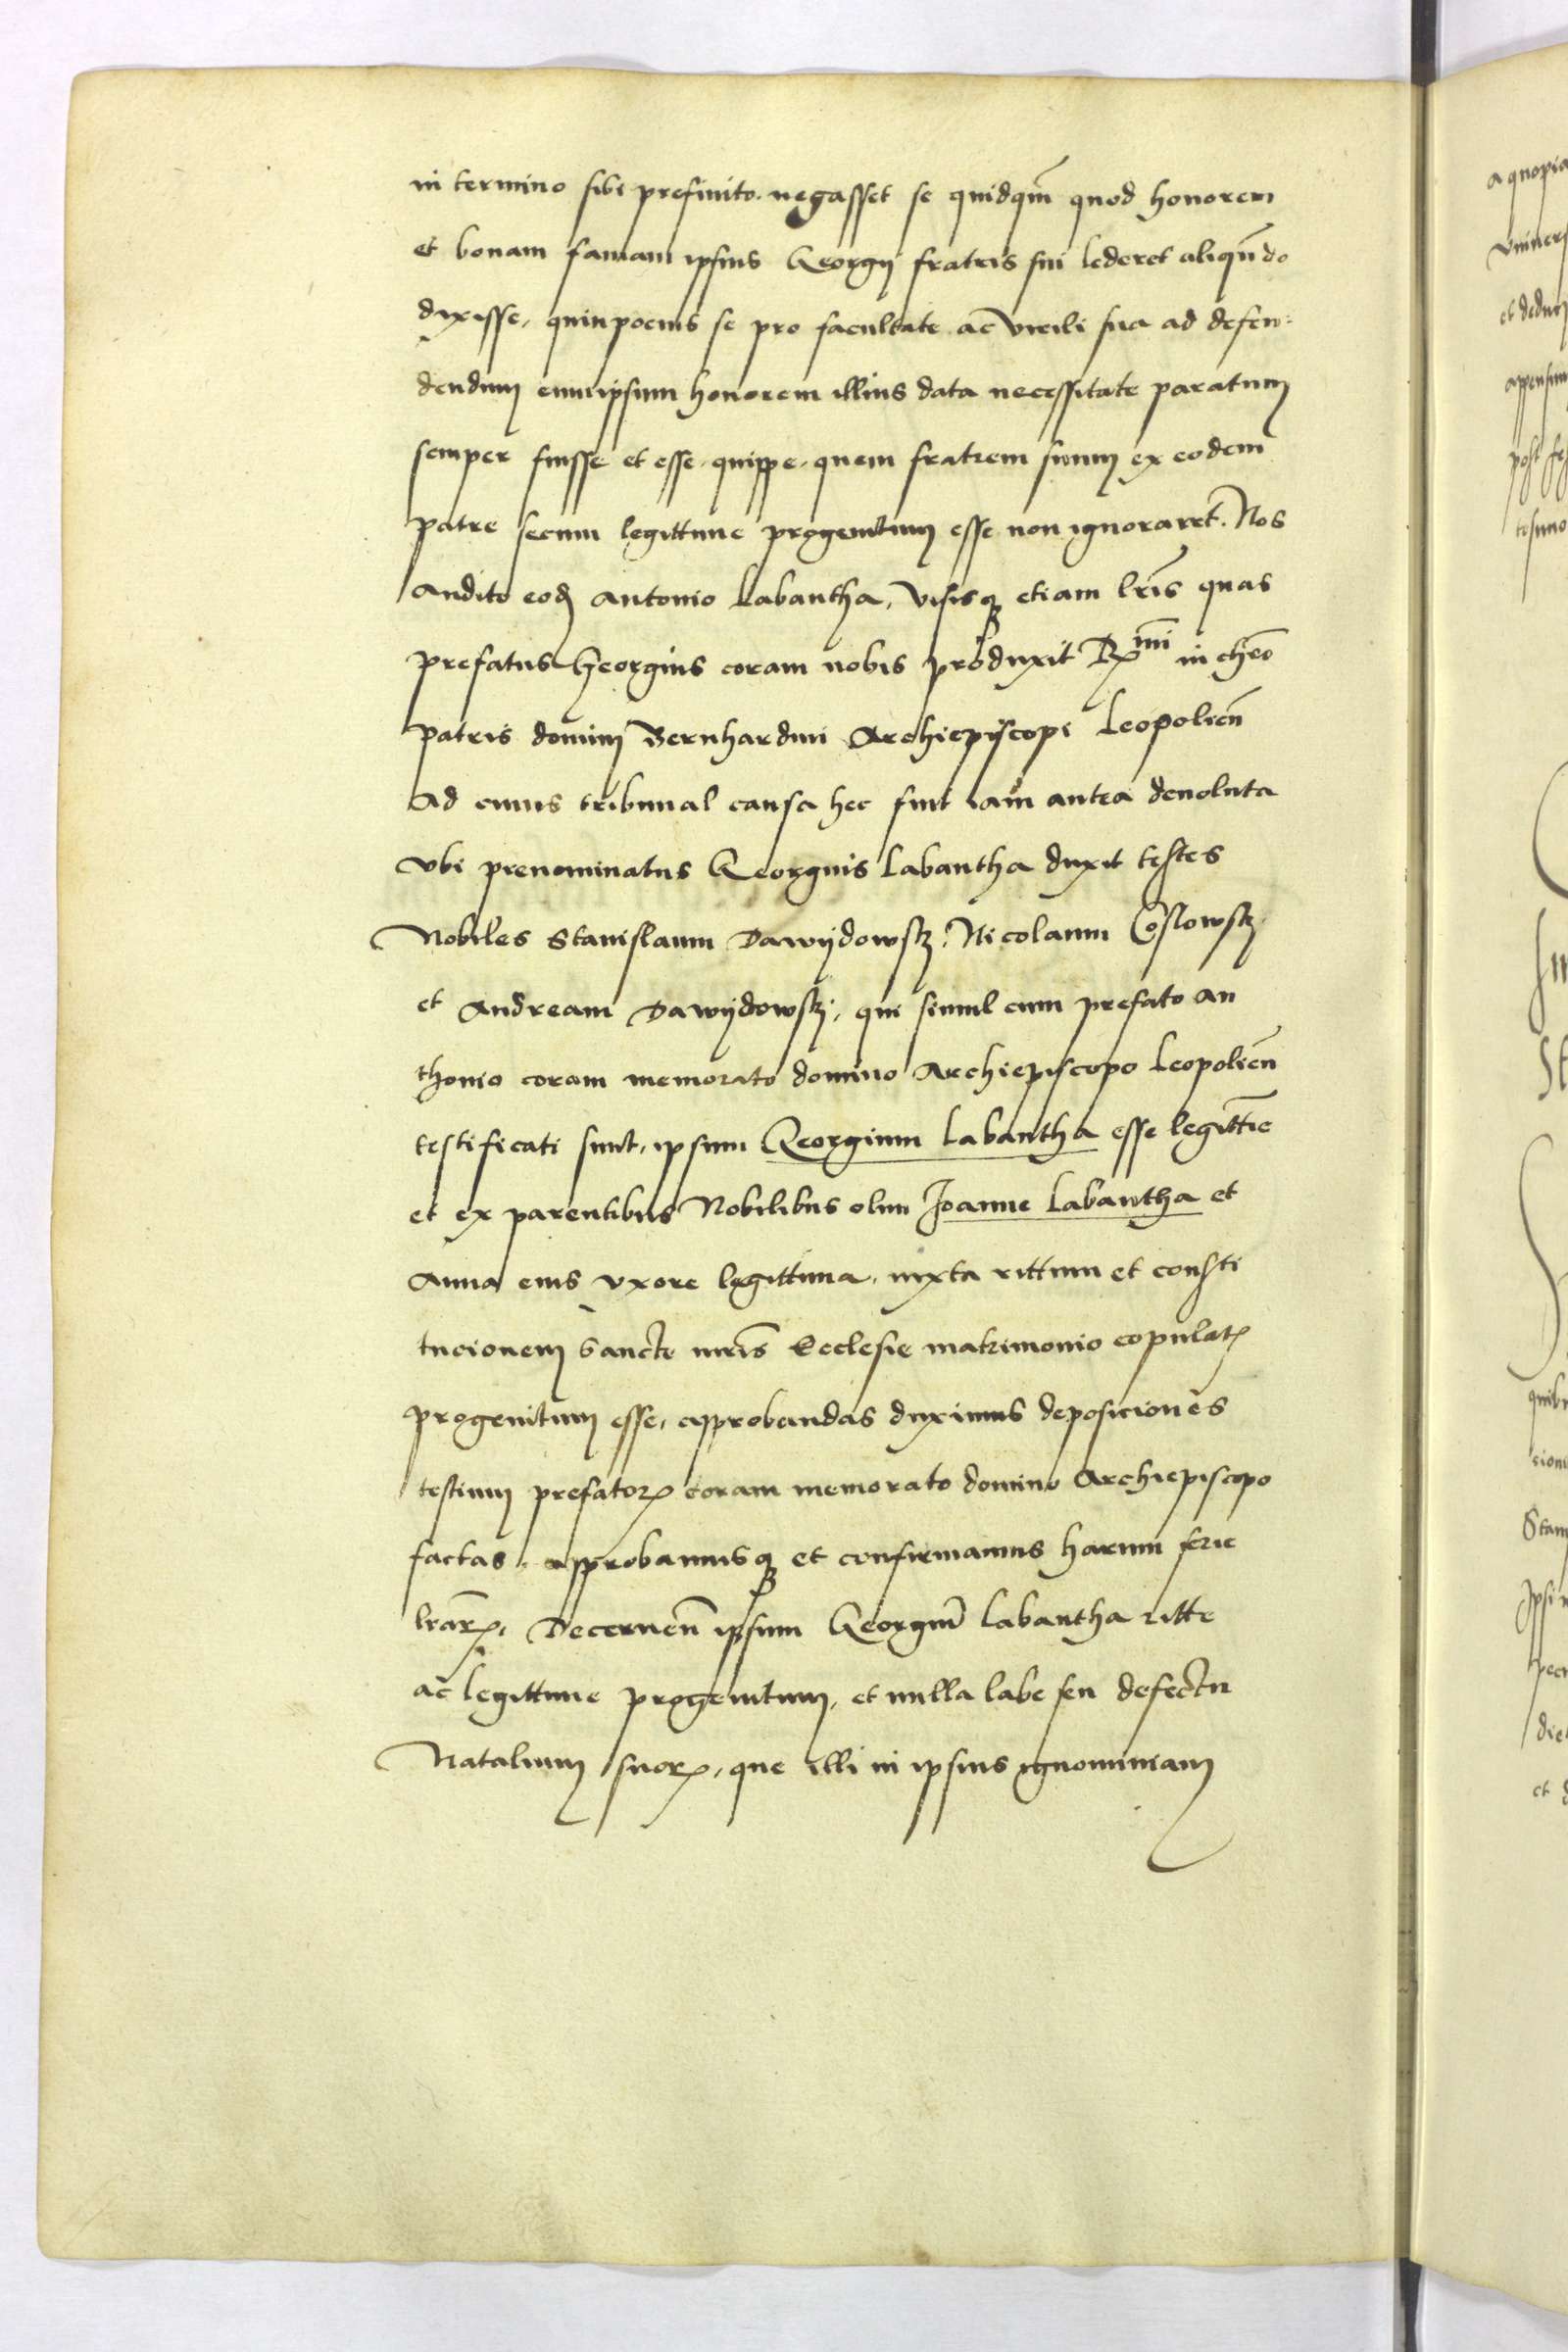 in termino sibi prefinito. negasset se quidqm̄ quod honorem
et bonam famam ipsius Georgij fratris sui lederet aliqn̄do
dixisse, quinpocius se pro facultate ac virili sua ad defen-
dendum eumipsum honorem illius data necessitate paratum
semper fuisse et esse. quippe. quem fratrem suum ex eodem
patre secum legittime progenitum esse non ignoraret. Nos
Audito eod antonio Labantha, visisq; etiam lr̄is quas
prefatus Georgius coram nobis produxit R̄mi in chr̄o
patris domini Bernhardini Archiepiscopi Leopolien̄
Ad cuius tribunal causa hec fuit iam antea deuoluta
Vbi prenominatus Georgius Labantha duxit testes
Nobiles Stanislaum Dawijdowskj. Nicolaum Coslowskj
et Andream Dawijdowskj, qui simul cum prefato an
thonio coram memorato domino Archiepiscopo Leopolien̄
testificati sunt, ipsum Georgium Labantha esse legittīe
et ex parentibus Nobilibus olim Joanne Labantha et
Anna eius vxore legittima, iuxta rittum et consti
tucionem Sancte mr̄is Ecclesie matrimonio copulatꝝ
progenitum esse, approbandas duximus deposiciones
testium prefatorꝝ coram memorato domino Archiepiscopo
factas. approbamusq; et confirmamus harum serie
lrārꝝ. Decernen̄ ipsum Georgiū Labantha ritte
ac legittime progenitum, et nulla labe seu defectu
Natalium suorꝝ, que illi in ipsius ignominiam